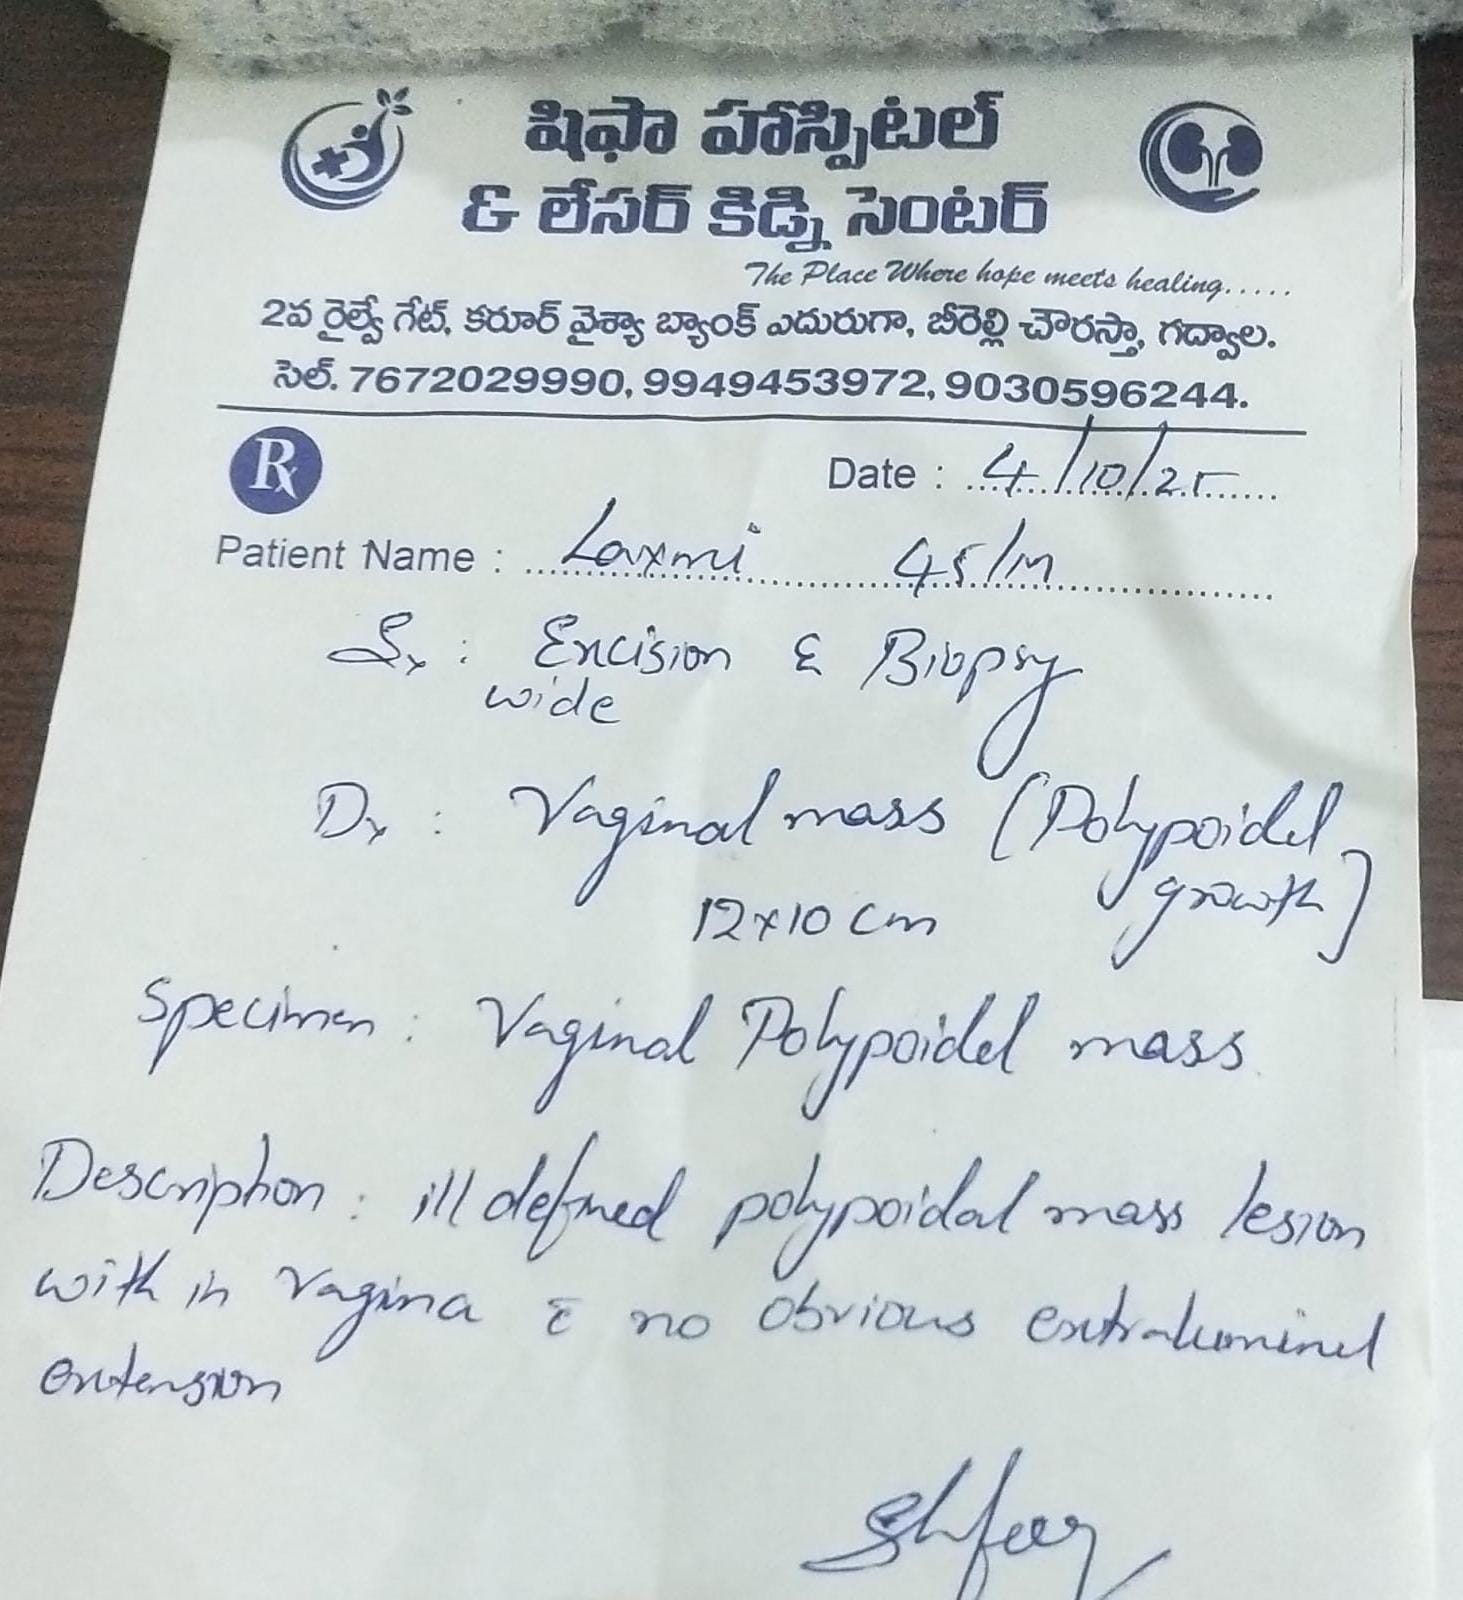 షిఫా హాస్పిటల్
& లేసర్ కిడ్ని సెంటర్
The Place Where hope meets healing.....
2వ రైల్వే గేట్, కరూర్ వైశ్యా బ్యాంక్ ఎదురుగా, బీరెల్లి చౌరస్తా, గద్వాల.
సెల్. 7672029990, 9949453972, 9030596244.
Rx
Date : 4/10/25
Patient Name : Laxmi 45/M
Sx : Excision & Biopsy
wide
Dx : Vaginal mass (Polypoidal
growth)
12x10 cm
Specimen : Vaginal Polypoidal mass
Description : ill defined polypoidal mass lesion
with in vagina c̄ no obvious extraluminal
extension